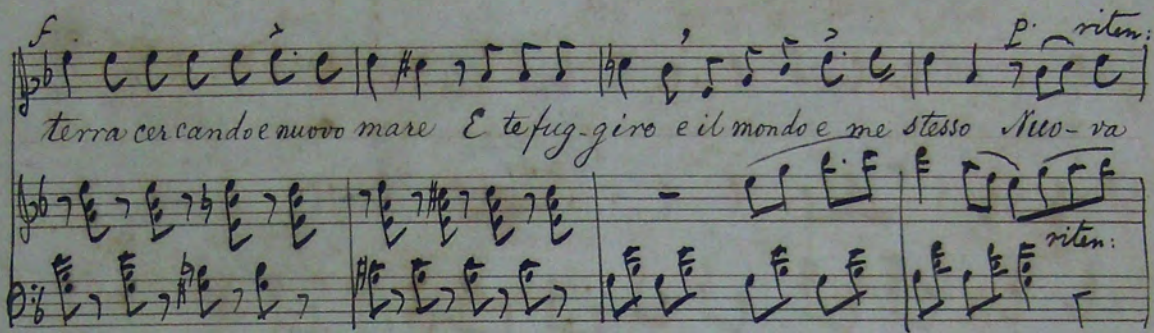 f p. riten:
terra cercando e nuovo mare E te fug-giro e il mondo e me stesso Nuo-va
riten: